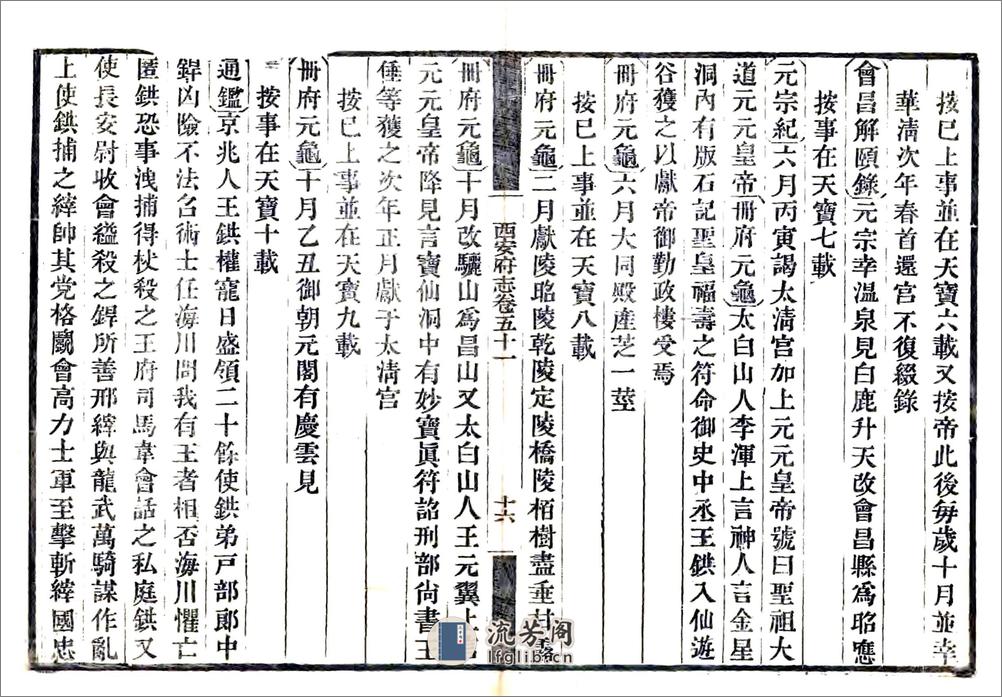 按已上事並在天寶六載又按帝此後每歲十月並幸
華淸次年春首還宮不復綴錄
會昌解頤錄元宗幸溫泉見白鹿升天改會昌縣爲昭應
按事在天寶七載
元宗紀六月丙寅謁太淸宮加上元元皇帝號曰聖祖大
道元元皇帝冊府元龜太白山人李渾上言神人言金星
洞內有版石記聖皇福壽之符命御史中丞王鉷入仙遊
谷獲之以獻帝御勤政樓受焉
冊府元龜六月大同殿產芝一莖
按已上事並在天寶八載
冊府元龜二月獻陵昭陵乾陵定陵橋陵栢樹盡垂甘露
西安府志卷五十一
十六
冊府元龜十月改驪山爲昌山又太白山人王元翼上
元元皇帝降見言寶仙洞中有妙寶眞符詔刑部尙書王
倕等獲之次年正月獻于太淸宮
按已上事並在天寶九載
冊府元龜十月乙丑御朝元閣有慶雲見
按事在天寶十載
通鑑京兆人王鉷權寵日盛領二十餘使鉷弟戸部郞中
銲凶險不法召術士任海川問我有王者相否海川懼亡
匿鉷恐事洩捕得杖殺之王府司馬韋會話之私庭鉷又
使長安尉收會縊殺之銲所善邢縡與龍武萬騎謀作亂
上使鉷捕之縡帥其党格鬭會高力士軍至擊斬縡國忠
流芳阁
lfglib.cn